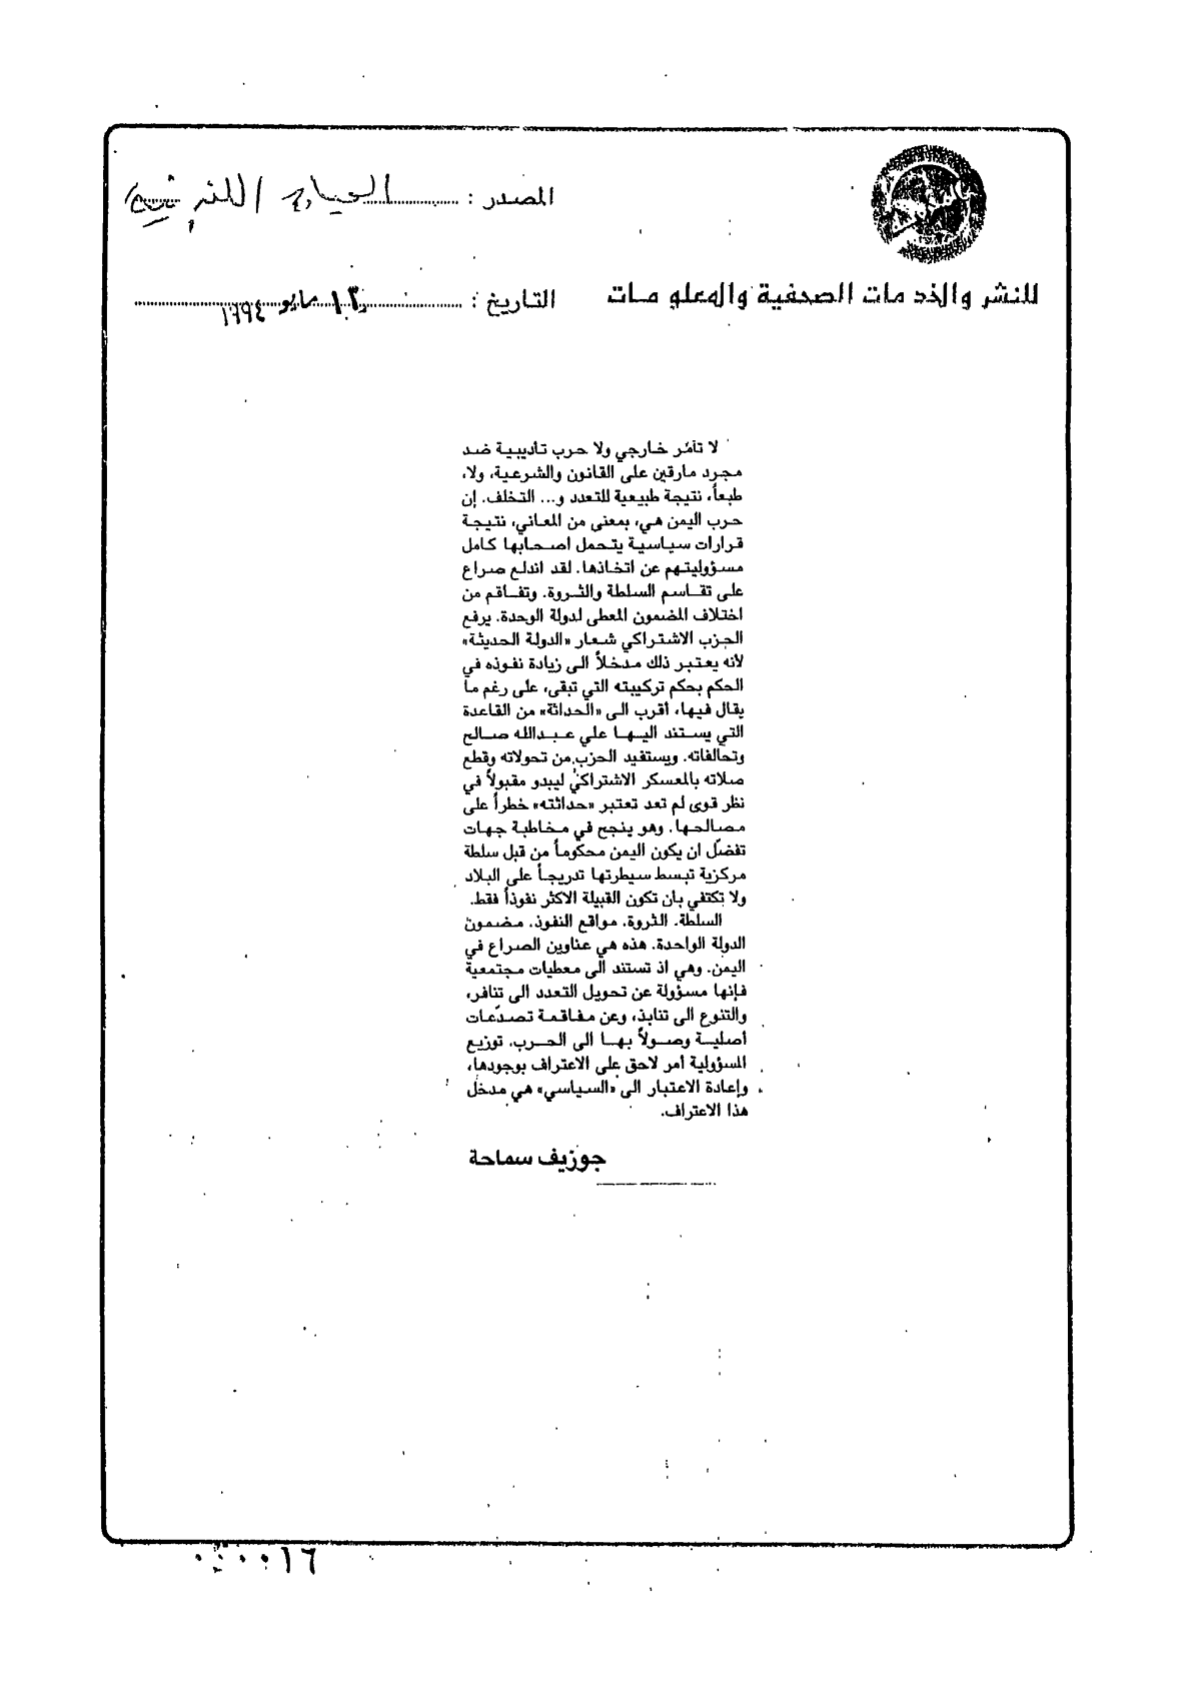 المصدر : الحياة اللندنية
للنشر والخدمات الصحفية والمعلومات
التاريخ : ١٣ مايو ١٩٩٤
لا تآمر خارجي ولا حرب تأديبية ضد
مجرد مارقين على القانون والشرعية، ولا،
طبعاً، نتيجة طبيعية للتعدد و... التخلف. إن
حرب اليمن هي، بمعنى من المعاني، نتيجة
قرارات سياسية يتحمل اصحابها كامل
مسؤوليتهم عن اتخاذها. لقد اندلع صراع
على تقاسم السلطة والثروة. وتفاقم من
اختلاف المضمون المعطى لدولة الوحدة. يرفع
الحزب الاشتراكي شعار «الدولة الحديثة»
لانه يعتبر ذلك مدخلاً الى زيادة نفوذه في
الحكم بحكم تركيبته التي تبقى، على رغم ما
يقال فيها، أقرب الى «الحداثة» من القاعدة
التي يستند اليها علي عبدالله صالح
وتحالفاته. ويستفيد الحزب من تحولاته وقطع
صلاته بالمعسكر الاشتراكي ليبدو مقبولاً في
نظر قوى لم تعد تعتبر «حداثته» خطراً على
مصالحها. وهو ينجح في مخاطبة جهات
تفضّل ان يكون اليمن محكوماً من قبل سلطة
مركزية تبسط سيطرتها تدريجاً على البلاد
ولا تكتفي بان تكون القبيلة الاكثر نفوذاً فقط.
السلطة. الثروة. مواقع النفوذ. مضمون
الدولة الواحدة. هذه هي عناوين الصراع في
اليمن. وهي اذ تستند الى معطيات مجتمعية
فإنها مسؤولة عن تحويل التعدد الى تنافر،
والتنوع الى تنابذ، وعن مفاقمة تصدّعات
أصلية وصولاً بها الى الحرب. توزيع
المسؤولية أمر لاحق على الاعتراف بوجودها،
وإعادة الاعتبار الى «السياسي» هي مدخل
هذا الاعتراف.
جوزيف سماحة
٠٠٠٠١٦